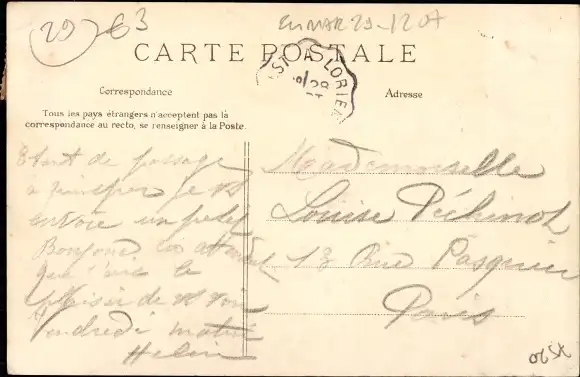 29 263
EN MAR 29-12 07
CARTE POSTALE
ST A LORIEN
28
Correspondance
Adresse
Tous les pays étrangers n'acceptent pas la
correspondance au recto, se renseigner à la Poste.
Etant de passage
à Quimper je
envoie un petit
Bonjour en attendant
que j'aie le
plaisir de voir
Vendredi matin
Mademoiselle
Louise Péchinot
13 Rue Pasquier
Paris